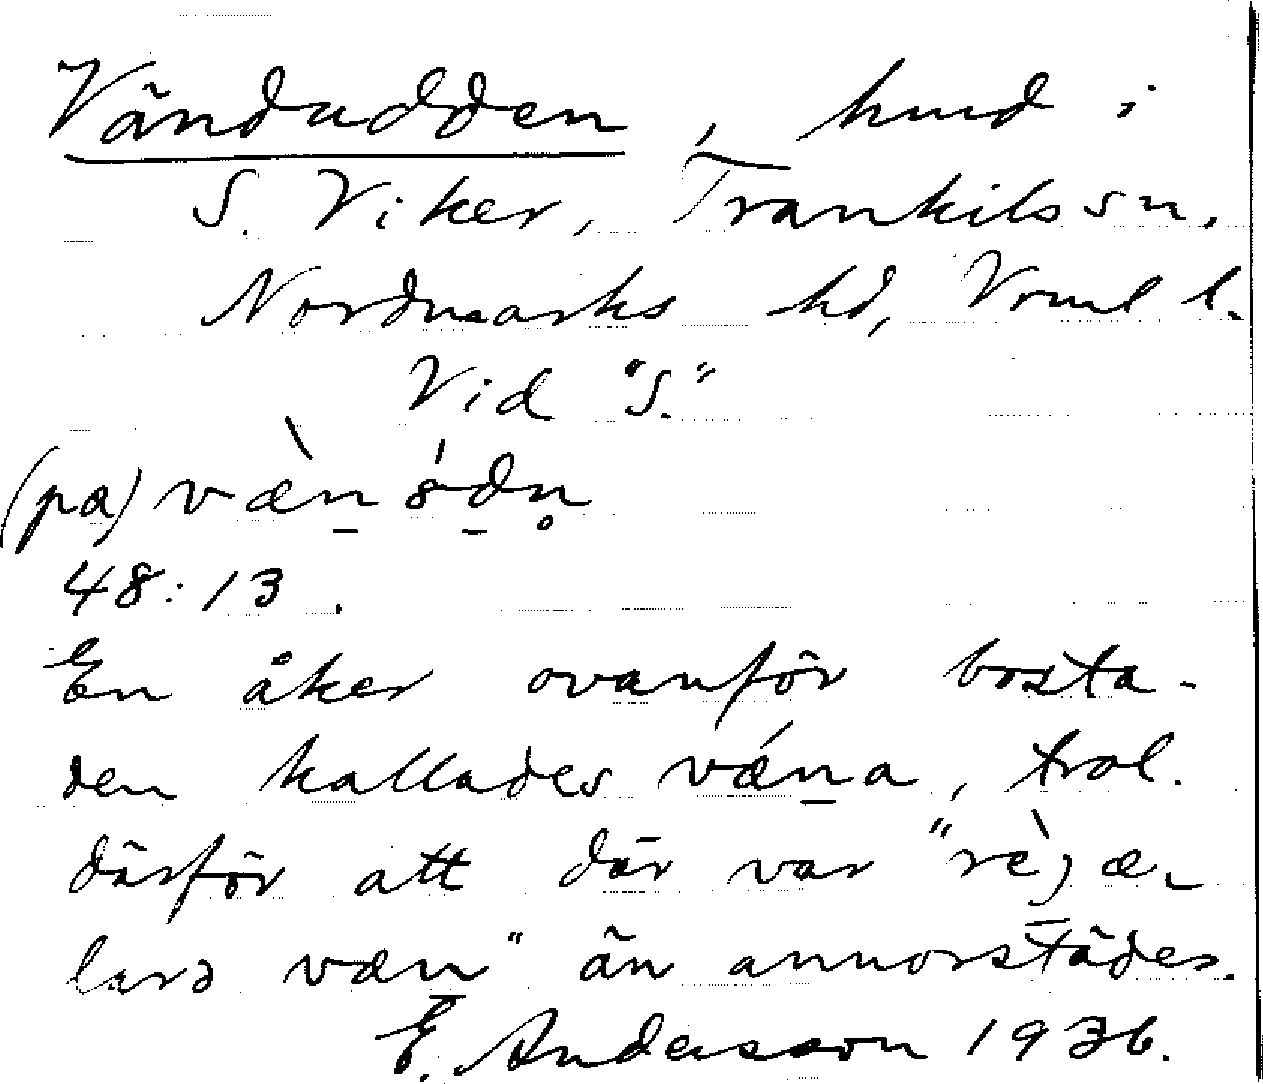 Vändudden, hmd i
S. Viker, Trankils sn,
Nordmarks hd, Vrml l.
Vid "S."
(pa) væ̀n
48:13.
En åker ovanför bosta-
den kallades vǽna, trol.
därför att där var
væn" än annorstädes.
E. Andersson 1936.